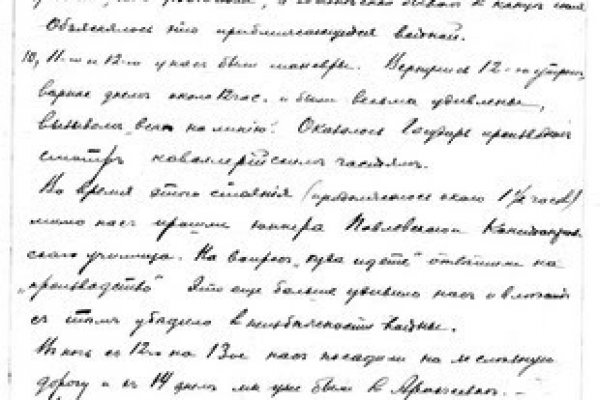 Объяснялось это приближающейся войной.
10, 11-го и 12-го у нас были маневры. Вернулись 12-го утром,
днем около 12 час. и были весьма удивлены,
вызовом „всех на линию". Оказалось Государь производил
смотр кавалерийским частям.
Во время этого стояния (продолжалось около 1½ часов)
мимо нас прошли юнкера Павловского
училища. На вопрос „куда идете" ответили на
„производство" Это еще больше удивило нас и
с тем убедило в неизбежности войны.
В ночь с 12го на 13ое нас посадили на железную
дорогу и 14 днем мы уже были в